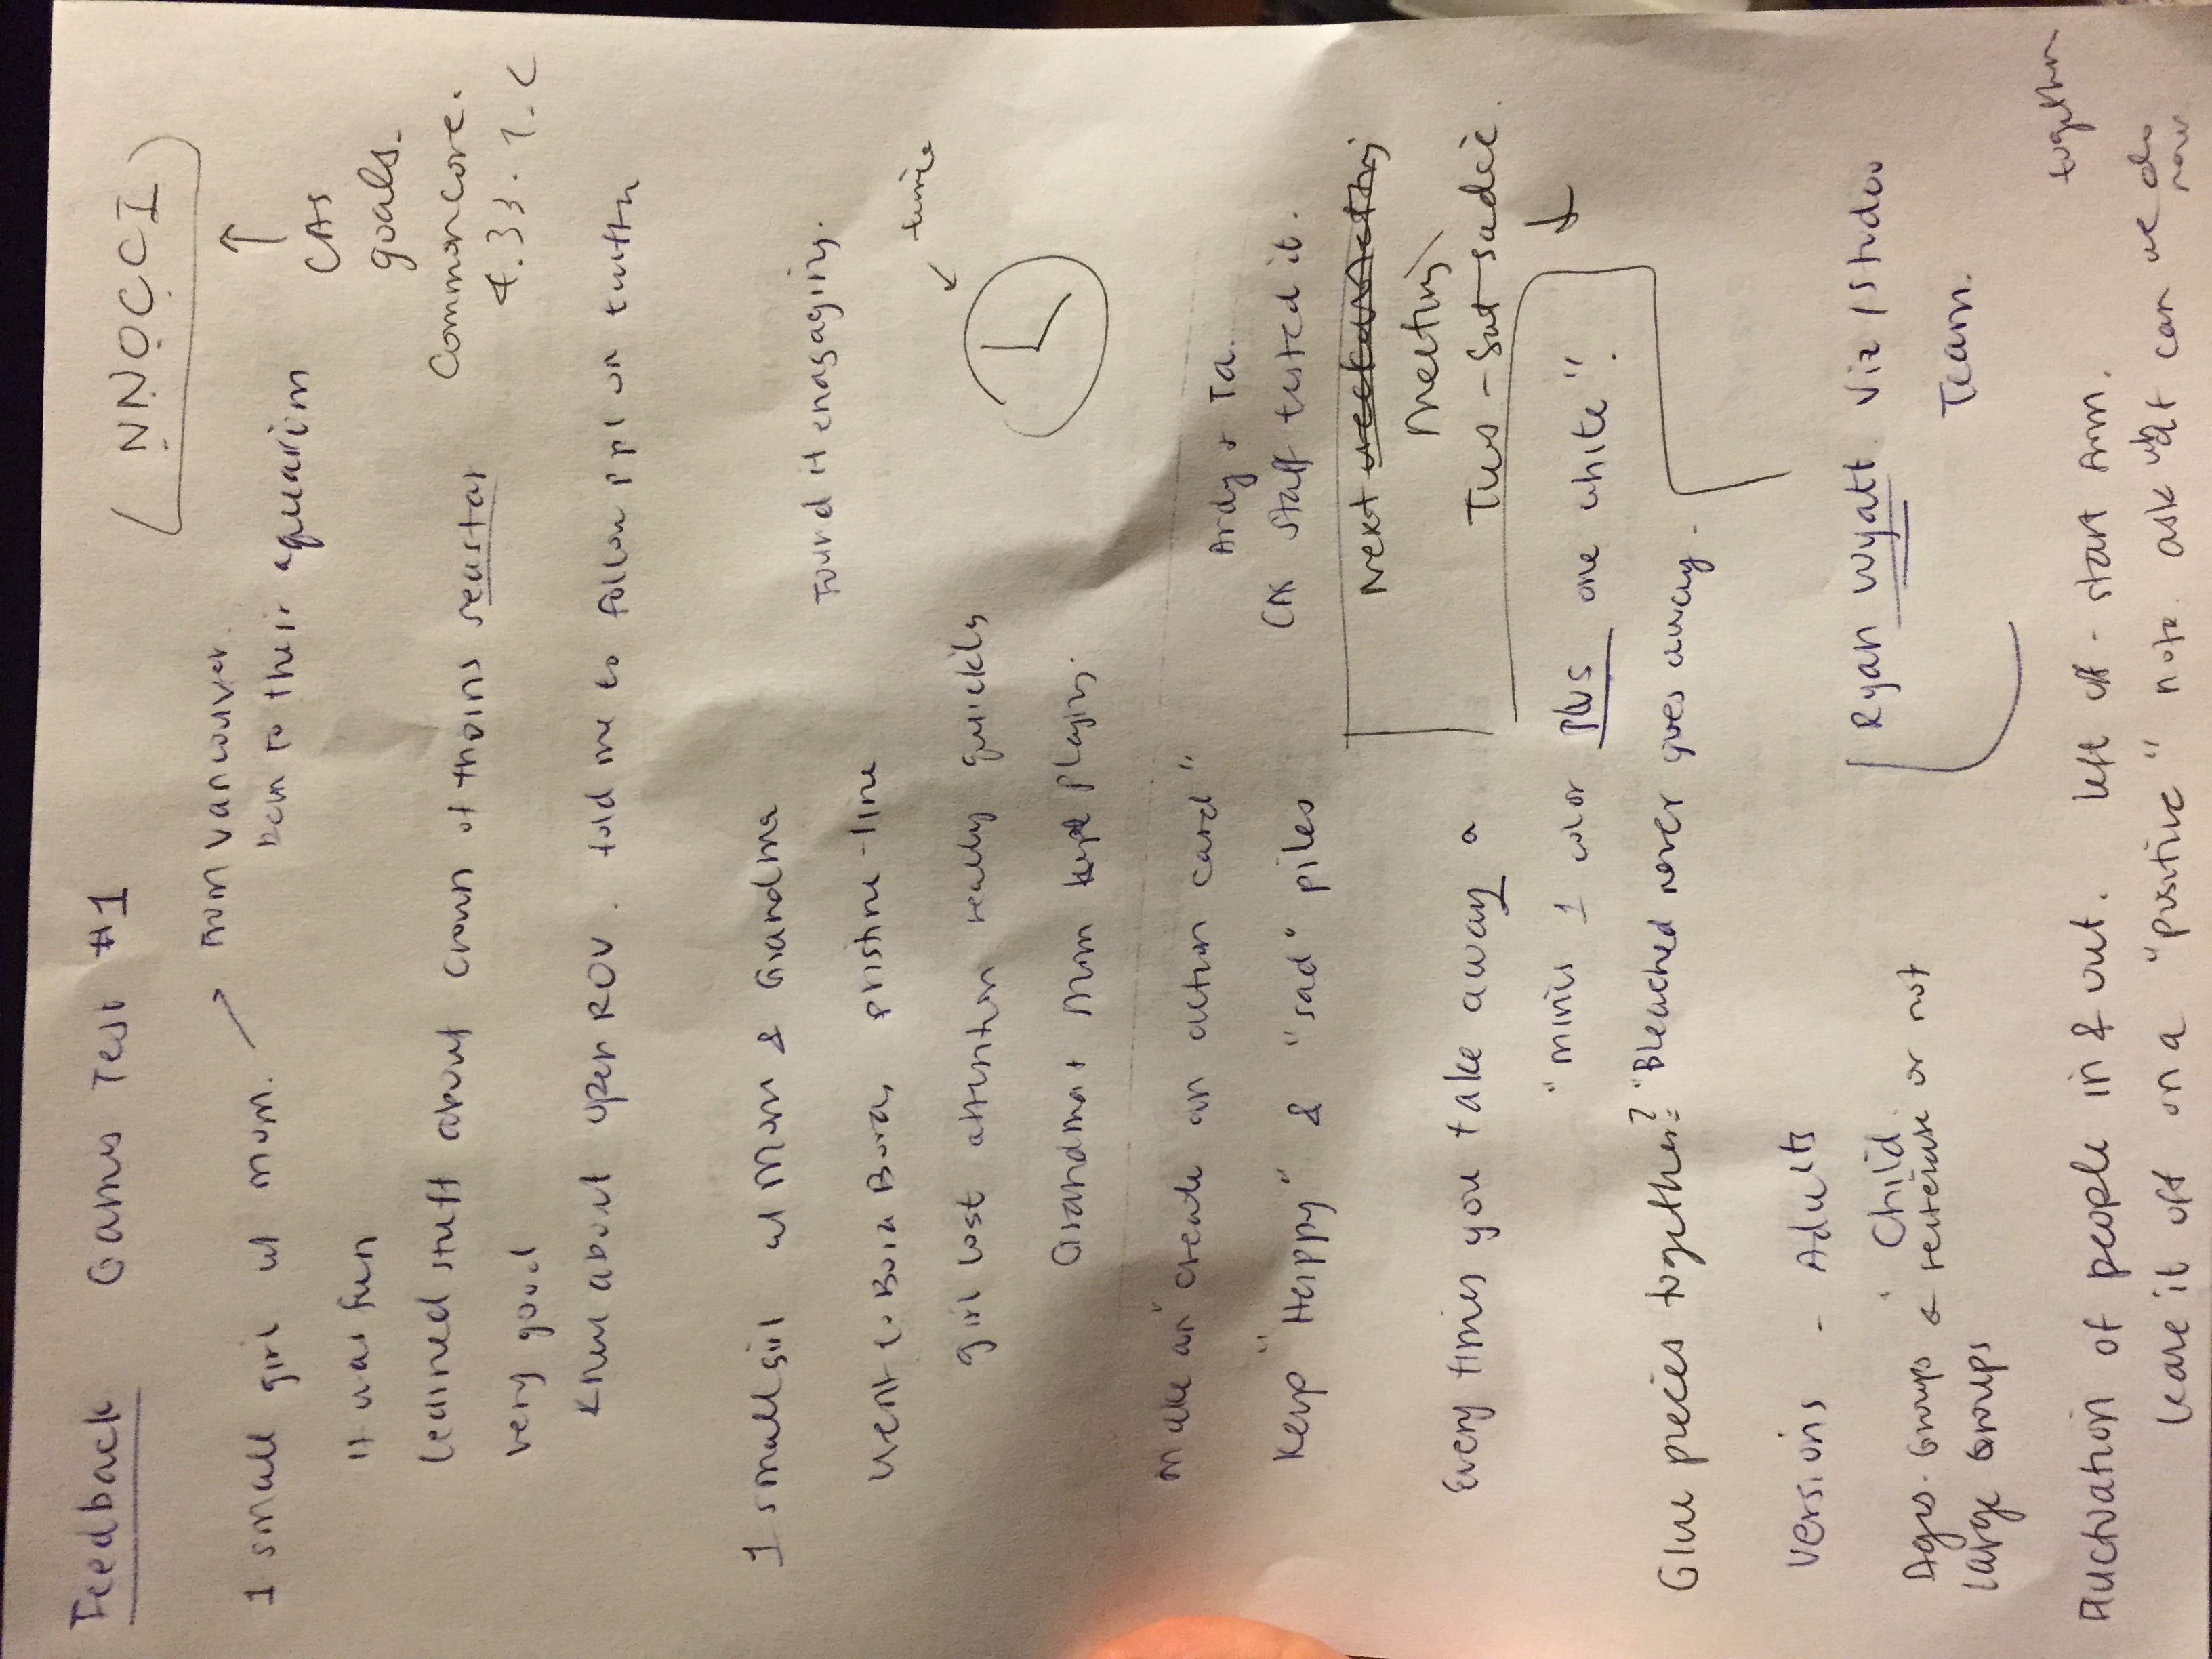 Feedback Games Test #1
NNOCCI
1 small girl w/ mom. → From Vancouver.
to their aquarium
CAS
goals.
Common Core.
4.33.1.C
it was fun
learned stuff about crown of thorns seastar
very good
knew about open ROV. told me to follow ppl on twitter
1 small girl w/ Mom & Grandma
Found it enagaging.
Went to Bora Bora, pristine-line
time
girl lost attention really quickly
Grandma + Mom kept Playing.
Make an "create an action card"
Ardy + Ta.
Keep "Happy" & "sad" piles
CAS staff tested it.
Next
Meeting
Tues - Sat sadie.
Every times you take away a
"minus 1 color plus one white".
Glue pieces together? "Bleached never goes away.
Versions - Adults
Child
Ages. Groups & or not
Large Groups
Ryan Wyatt. Viz / Studio
Team.
Fluctuation of people in & out. left off - start from.
together
leave it off on a "positive" note. ask what can we do
now